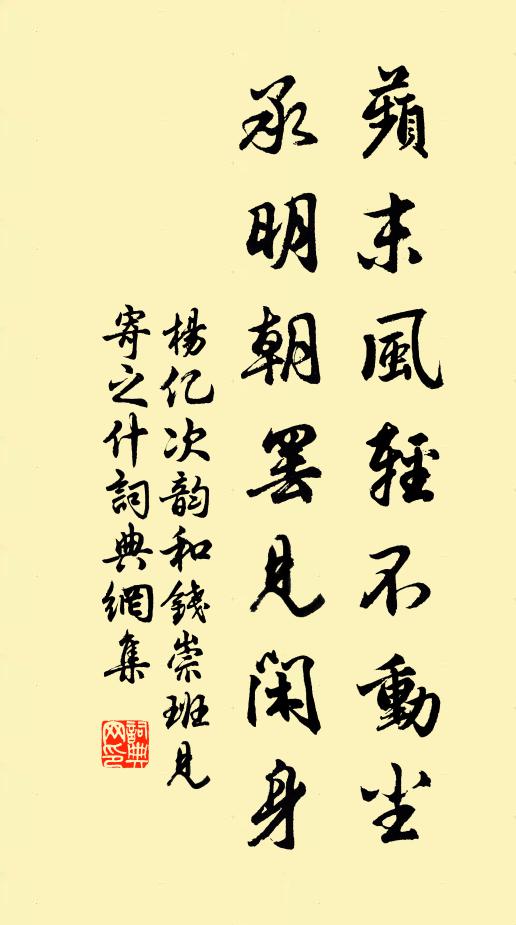 蘋末風輕不動尘
承明朝罢見閑身
楊亿次韵和錢崇班見
寄之什詞典網集
詞典网印